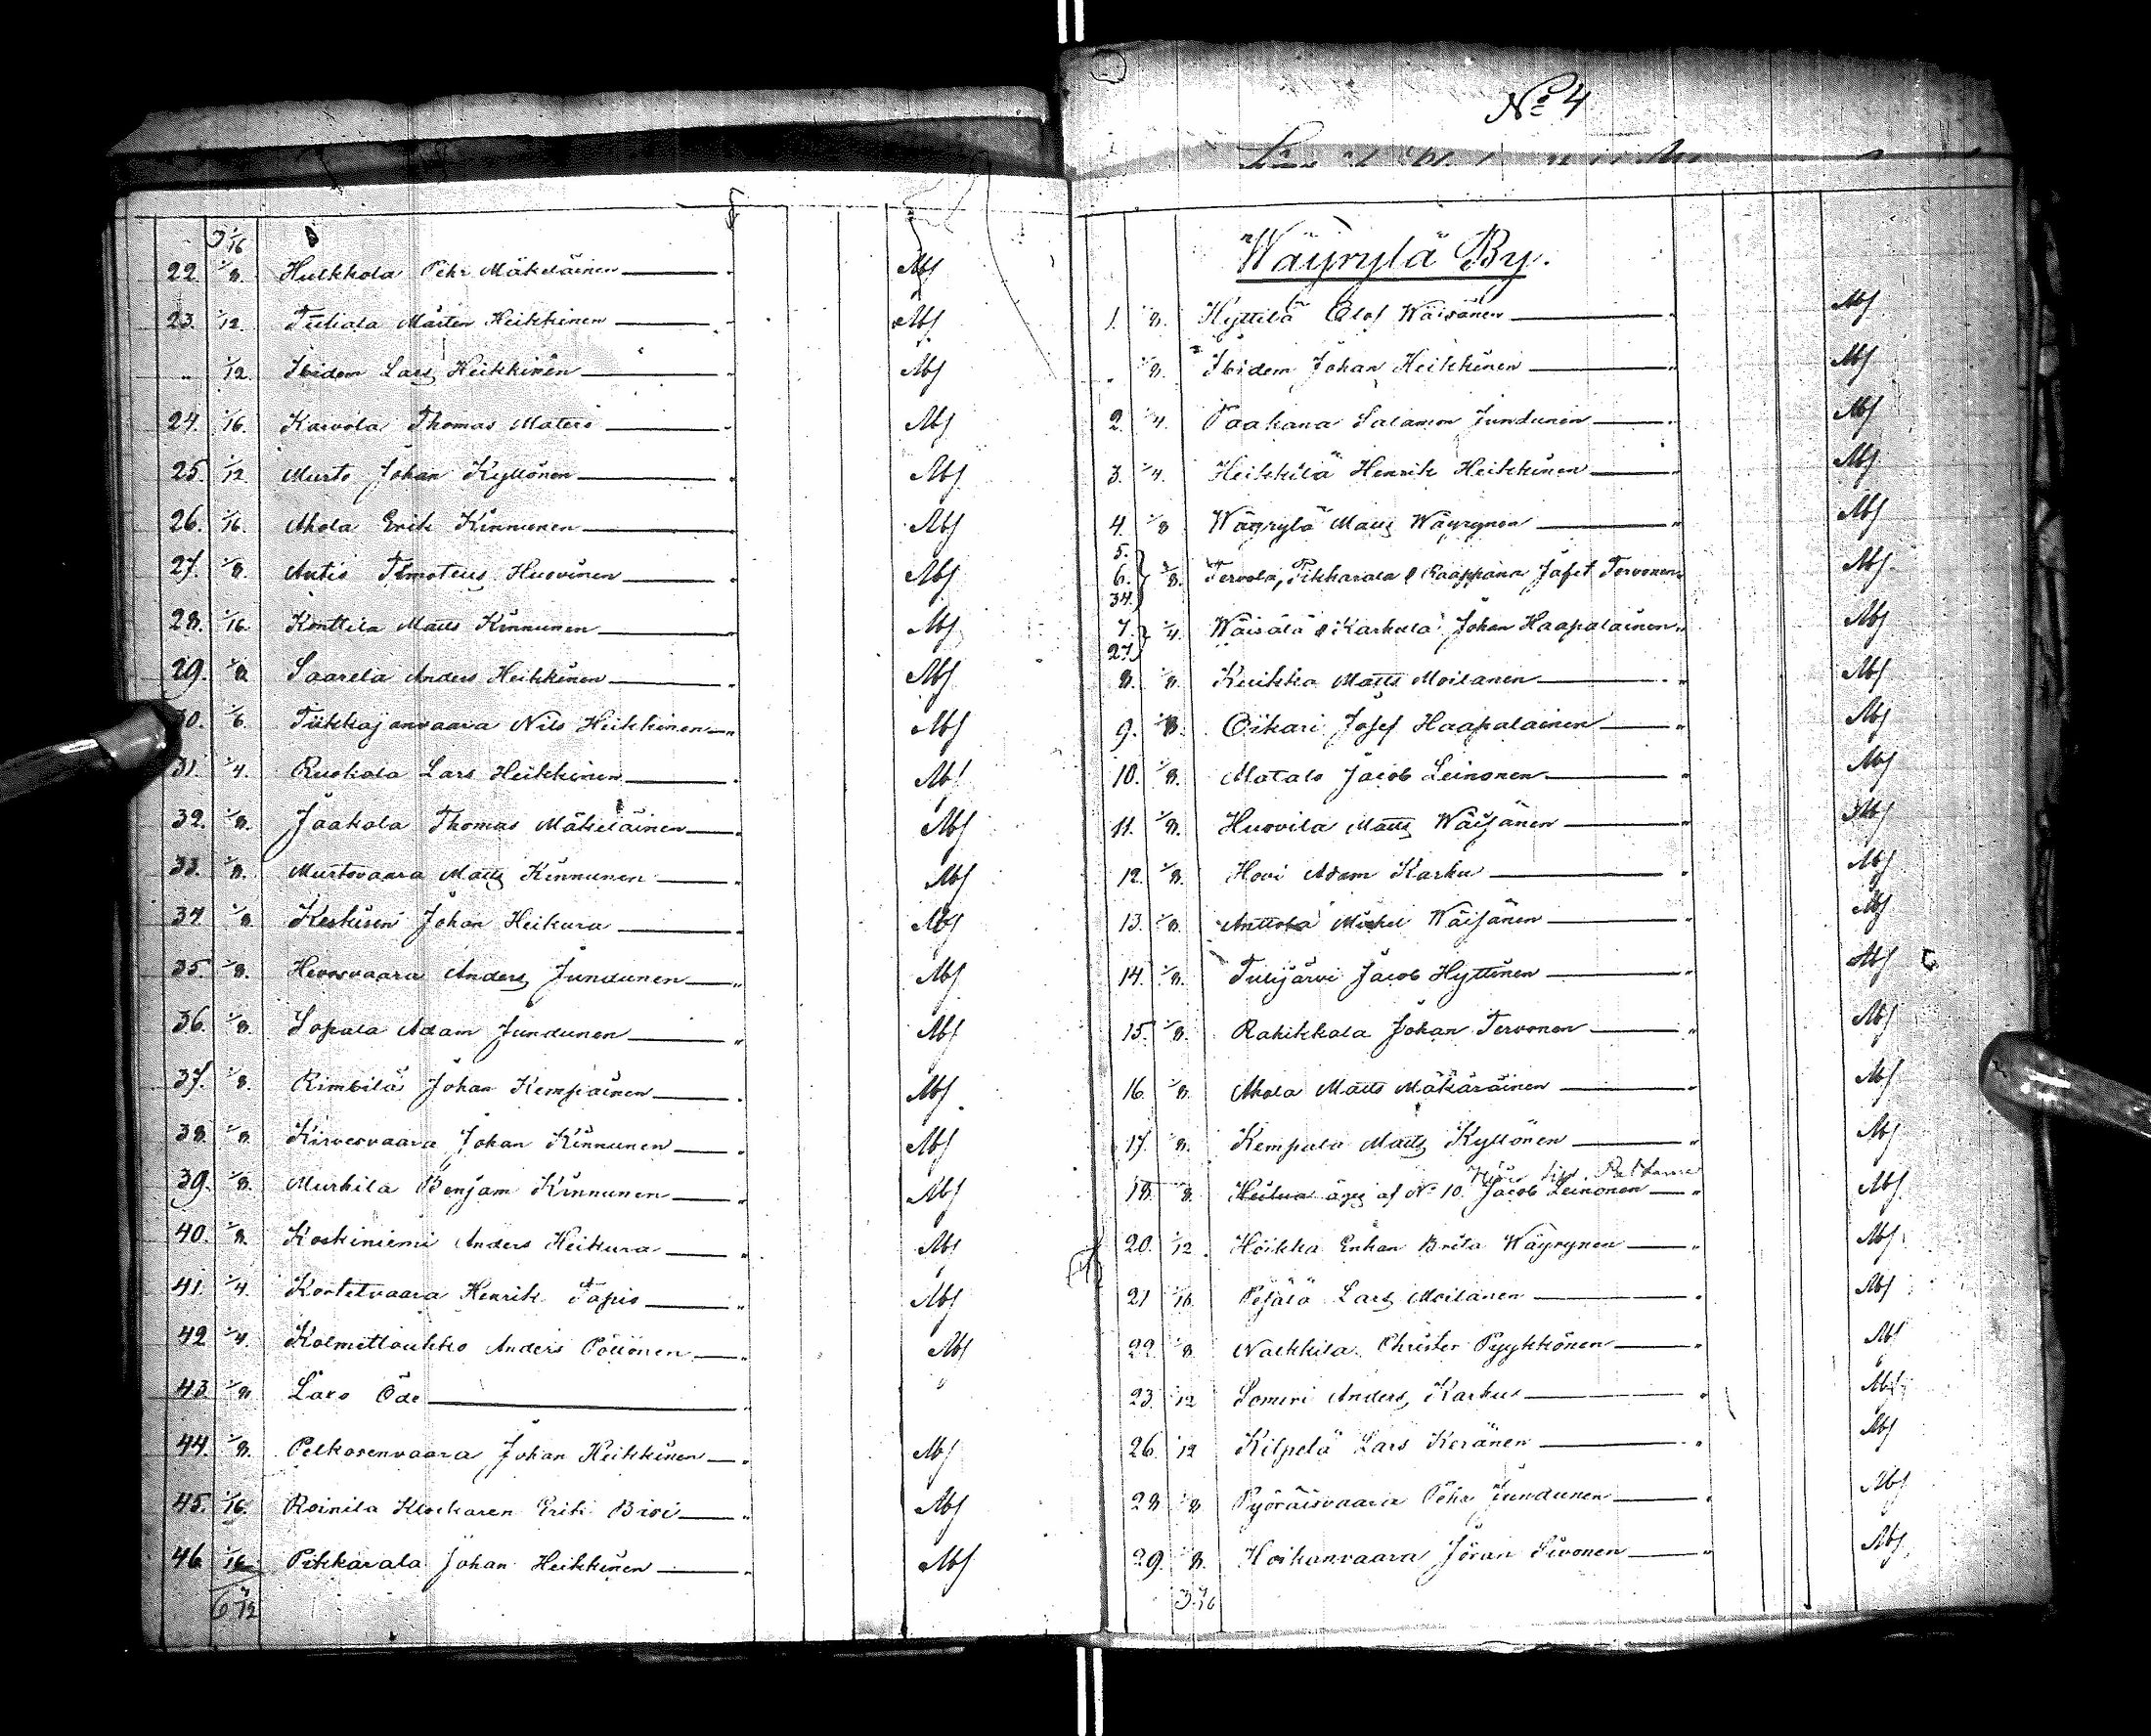 3 1/16
22. 1/8. Hulkkola Pehr Mäkeläinen „ Abf
23. 1/12. Tuliala Mårten Heikkinen „ Abf
„ 1/12. Ibidem Lars Heikkinen „ Abf
24. 1/16. Kaivola Thomas Matero „ Abf
25. 1/12 Murto Johan Kyllönen „ Abf
26. 1/16. Ahola Erik Kinnunen „ Abf
27. 1/8. Antis Timoteus Huovinen „ Abf
28. 1/16. Konttila Matts Kinnunen „ Abf
29. 1/8 Saarela Anders Heikkinen „ Abf
30. 1/6. Tikkajanvaara Nils Heikkinen „ Abf
31. 1/4. Ruokola Lars Heikkinen „ Abf
32. 1/8. Jaakola Thomas Mäkeläinen „ Abf
33. 1/8. Murtovaara Matts Kinnunen „ Abf
34. 1/8 Keskisen Johan Heikura „ Abf
35. 1/8. Hevosvaara Anders Jundunen „ Abf
36. 1/8. Sopala Adam Jundunen „ Abf
37. 1/8. Rimbilä Johan Kempainen „ Abf
38. 1/8. Kirvesvaara Johan Kinnunen „ Abf
39. 1/8. Murhila Benjam Kinnunen „ Abf
40. 1/8. Koskiniemi Anders Heikura „ Abf
41. 1/4. Kortetvaara Henrik Tapio „ Abf
42 1/4. Kolmitloukko Anders Pöllönen „ Abf
43. 1/8. Laxo Öde „ „
44. 1/8. Pelkosenvaara Johan Heikkinen „ Abf
45. 1/16. Roinila Klockaren Erik Bisi „ Abf
46 1/16 Pikkarala Johan Heikkinen „ Abf
6 7/12
No 4
Wäyrylä By.
1. 1/8. Hyttilä Olof Wäisänen „ Abf
„ 1/8. Ibidem Johan Heikkinen „ Abf
2. 1/4. Paakana Salamon Jundunen „ Abf
3. 1/4. Heikkilä Henrik Heikkinen „ Abf
4. 1/8 Wäyrylä Matts Wäyrynen „ Abf
5.
6. 3/8. Tervola, Pikkarala & Raappana Jafet Tervonen „ Abf
34.
7. 1/4 Wäisälä & Karhula Johan Haapalainen „ Abf
27.
8. 1/8. Kuikka Matts Moilanen „ Abf
9. 1/8. Oikari Josef Haapalainen „ Abf
10. 1/8. Matalo Jacob Leinonen „ Abf
11. 1/8. Huovila Matts Wäisänen „ Abf
12. 1/8. Hovi Adam Karhu „ Abf
13. 1/8. Anttola Michel Wäisänen „ Abf
14. 1/8. Tulijärvi Jacob Hyttinen „ Abf
15. 1/8. Rahikkala Johan Tervonen „ Abf
16. 1/8. Ahola Matts Mäkäräinen „ Abf
17. 1/8. Kempala Matts Kyllönen „ Abf
18. 1/8 Heilua äges af No 10. Jacob Leinonen „ Abf
20. 1/12 Höikka Enkan Brita Wäyrynen „ Abf
21 1/16 Petälä Lars Moilanen „ Abf
22. 1/8 Naekkila Christer Pyykkönen „ Abf
23. 1/12 Someri Anders Karhu „ Abf
26. 1/12 Kilpelä Lars Keränen „ Abf
28 1/8 Pyöräisvaara Pehr Jundunen „ Abf
29. 1/8. Hoikanvaara Jöran Sivonen „ Abf
3 7/16